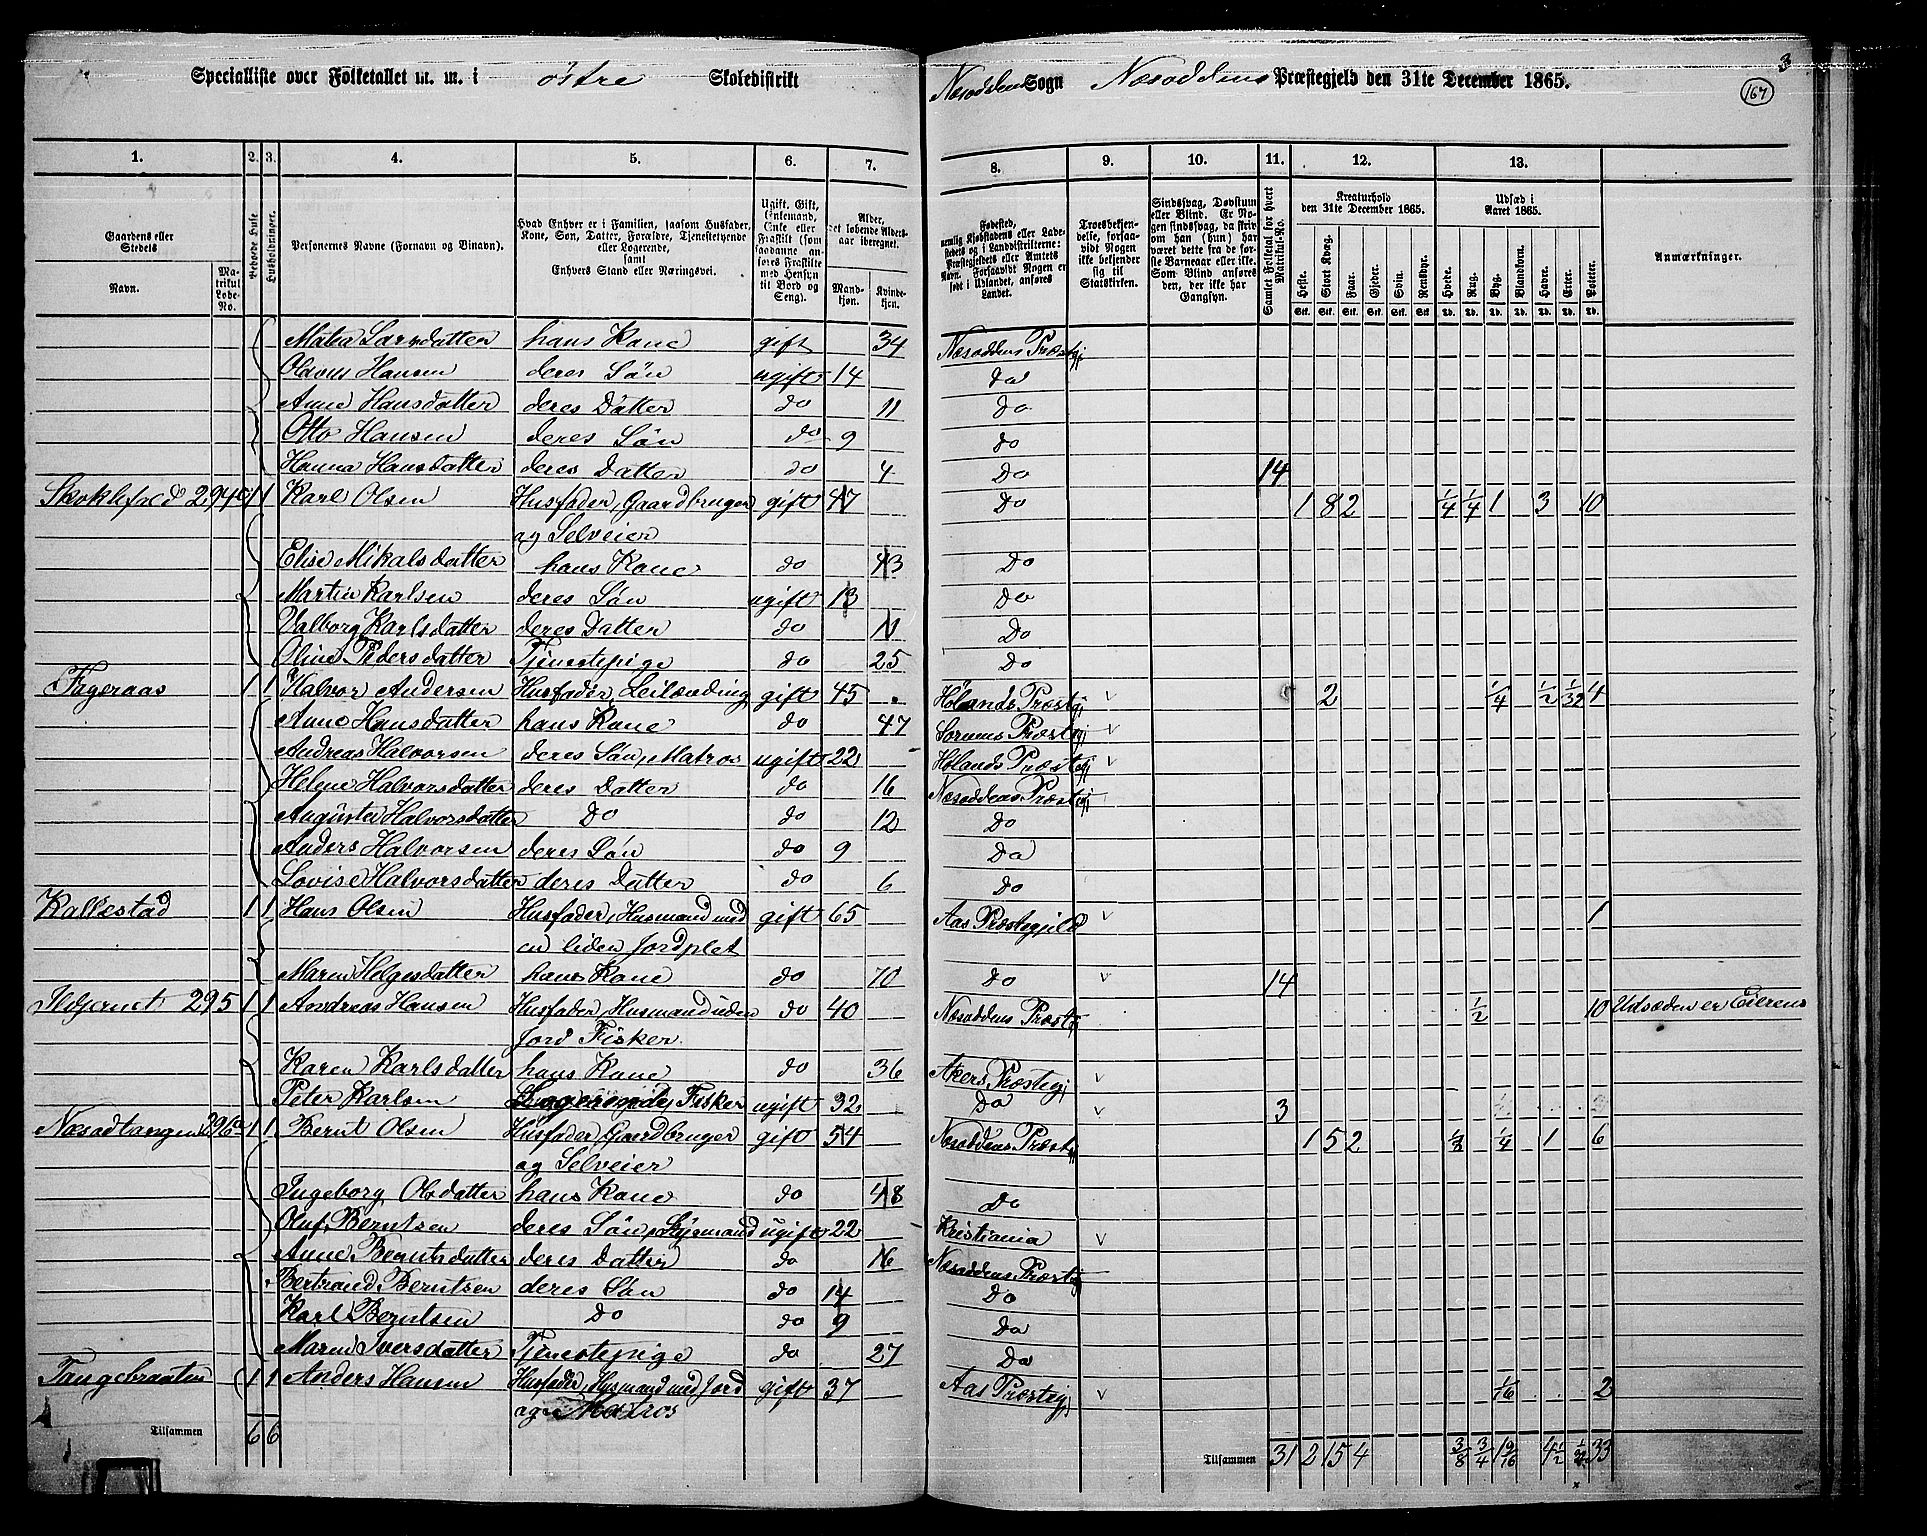 Specialliste over Folketallet m. m. i østre Skoledistrikt Næsoddens Sogn Næsoddens Præstegjeld den 31te December 1865. 3
167
1. 2. 3. 4. 5. 6. 7. 8. 9. 10. 11. 12. 13.
Gaardens eller Stedets
Navn. Matrikul Løbe-No.
Beboede Huse
Husholdninger.
Personernes Navne (Fornavn og Tilnavn).
Hvad Enhver er i Familien, saasom Husfader, Kone, Søn, Datter, Forældre, Tjenestetyende eller Logerende, samt Enhvers Stand eller Næringsvei.
Ugift, Gift, Enkemand, Enke eller Fraskilt (som saadanne anføres Fraskilte med Hensyn til Bord og Seng).
Alder, det løbende Aldersaar iberegnet.
Mandkjøn. Kvindekjøn.
Fødested, nemlig Kjøbstadens eller Ladestedets og i Landdistrikterne: Præstegjeldets eller Amtets Navn. Forsaavidt Nogen er født i Udlandet, anføres Landet.
Troesbekjendelse, forsaavidt Nogen ikke bekjender sig til Statskirken.
Sindssvag, Døvstum eller Blind. Er Nogen sindssvag, da skrives om han (hun) har været dette fra de første Barneaar eller ikke. Som Blind anføres den, der ikke har Gangsyn.
Samlet Folketal for hvert Matrikul-No.
Kreaturhold den 31te December 1865.
Heste. Stort Kvæg. Faar. Gjeder. Svin. Rensdyr.
Udsæd i Aaret 1865.
Hvede. Rug. Byg. Blandkorn. Havre. Erter. Poteter.
Anmærkninger.
Matea Larsdatter hans Kone gift 34 Næsoddens Præstgj
Olavus Hansen deres Søn ugift 14 do
Anne Hansdatter deres Datter do 11 do
Otto Hansen deres Søn do 9 do
Hanna Hansdatter deres Datter do 4 Do 14
Skoklefald 294 1 1 Karl Olsen Husfader, Gaardbruger gift 47 Do 1 8 2 1/4 1/4 1 3 10
og Selveier
Elise Mikalsdatter hans Kone do 43 Do
Martin Karlsen deres Søn ugift 13 Do
Valborg Karlsdatter deres Datter do 11 Do
Oline Pedersdatter Tjenestepige do 25 Do
Fageraas 1 1 Halvor Andersen Husfader, Leilænding gift 45 Hølands Præstgj 2 1/4 1/2 1/32 4
Anne Hansdatter hans Kone do 47 Præstgj
Andreas Halvorsen deres Søn, Matros ugift 22 Hølands Præstgj
Helene Halvorsdatter deres Datter do 16 Næsoddens Præstgj
Auguste Halvorsdatter Do do 12 Do
Anders Halvorsen deres Søn do 9 Do
Lovise Halvorsdatter deres Datter do 6 Do
Kallestad 1 1 Hans Olsen Husfader, Husmand med gift 65 Aas Præstegjeld 1
en liden Jordplet
Maren Helgesdatter hans Kone do 70 do 14
Ildjernet 295 1 1 Andreas Hansen Husfader, Husmand uden do 40 Næsoddens Præstgj 1/2 10 Udsæden er Eierens
Jord Fisker
Karen Karlsdatter hans Kone do 36 Akers Præstegj
Peter Karlsen Logerende, Fisker ugift 32 Do 3
Næsodtangen 296 1 1 Bernt Olsen Husfader, Gaardbruger gift 54 Næsoddens Præstgj 1 5 2 1/8 1/4 1 6
og Selveier
Ingeborg Olsdatter hans Kone do 48 Do
Oluf Berntsen deres Søn, Styrmand ugift 22 Kristiania
Anne Berntsdatter deres Datter do 16 Næsoddens Præstgj
Bertrand Berntsen deres Søn do 14 Do
Karl Berntsen Do do 9 Do
Maren Iversdatter Tjenestepige do 27 Do
Tangebraaten 1 1 Anders Hansen Husfader, Husmand med Jord gift 37 Aas Præstegj 1/16 2
og Matros
Tilsammen 6 6 Tilsammen 31 2 15 4 3/8 3/4 1 9/16 4 1/2 33